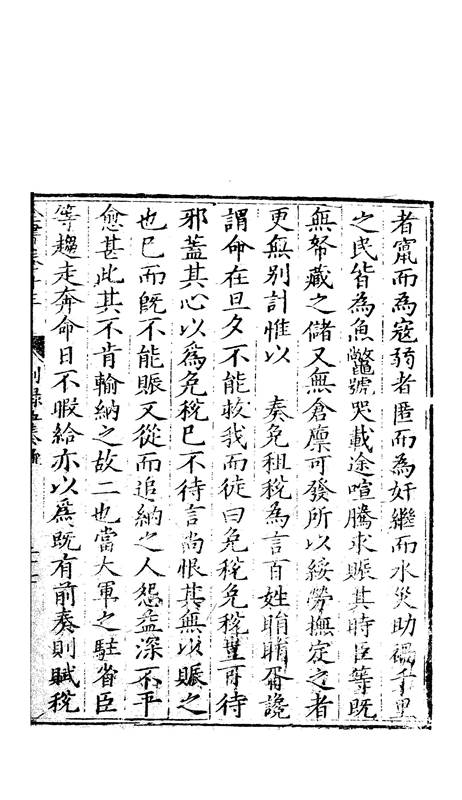 者竄而為寇弱者匿而為奸繼而水災助禍千里
之民皆為魚鱉號哭載途喧騰求賑其時臣等既
無帑藏之儲又無倉廩可發所以綏勞撫定之者
更無別計惟以　奏免租稅為言百姓睊睊胥讒
謂命在旦夕不能救我而徒曰免稅免稅豈可待
邪蓋其心以為免稅已不待言尚恨其無以賑之
也已而既不能賑又從而追納之人怨益深不平
愈甚此其不肯輸納之故二也當大軍之駐省臣
等趨走奔命日不暇給亦以為既有前奏則賦稅
別錄五奏疏